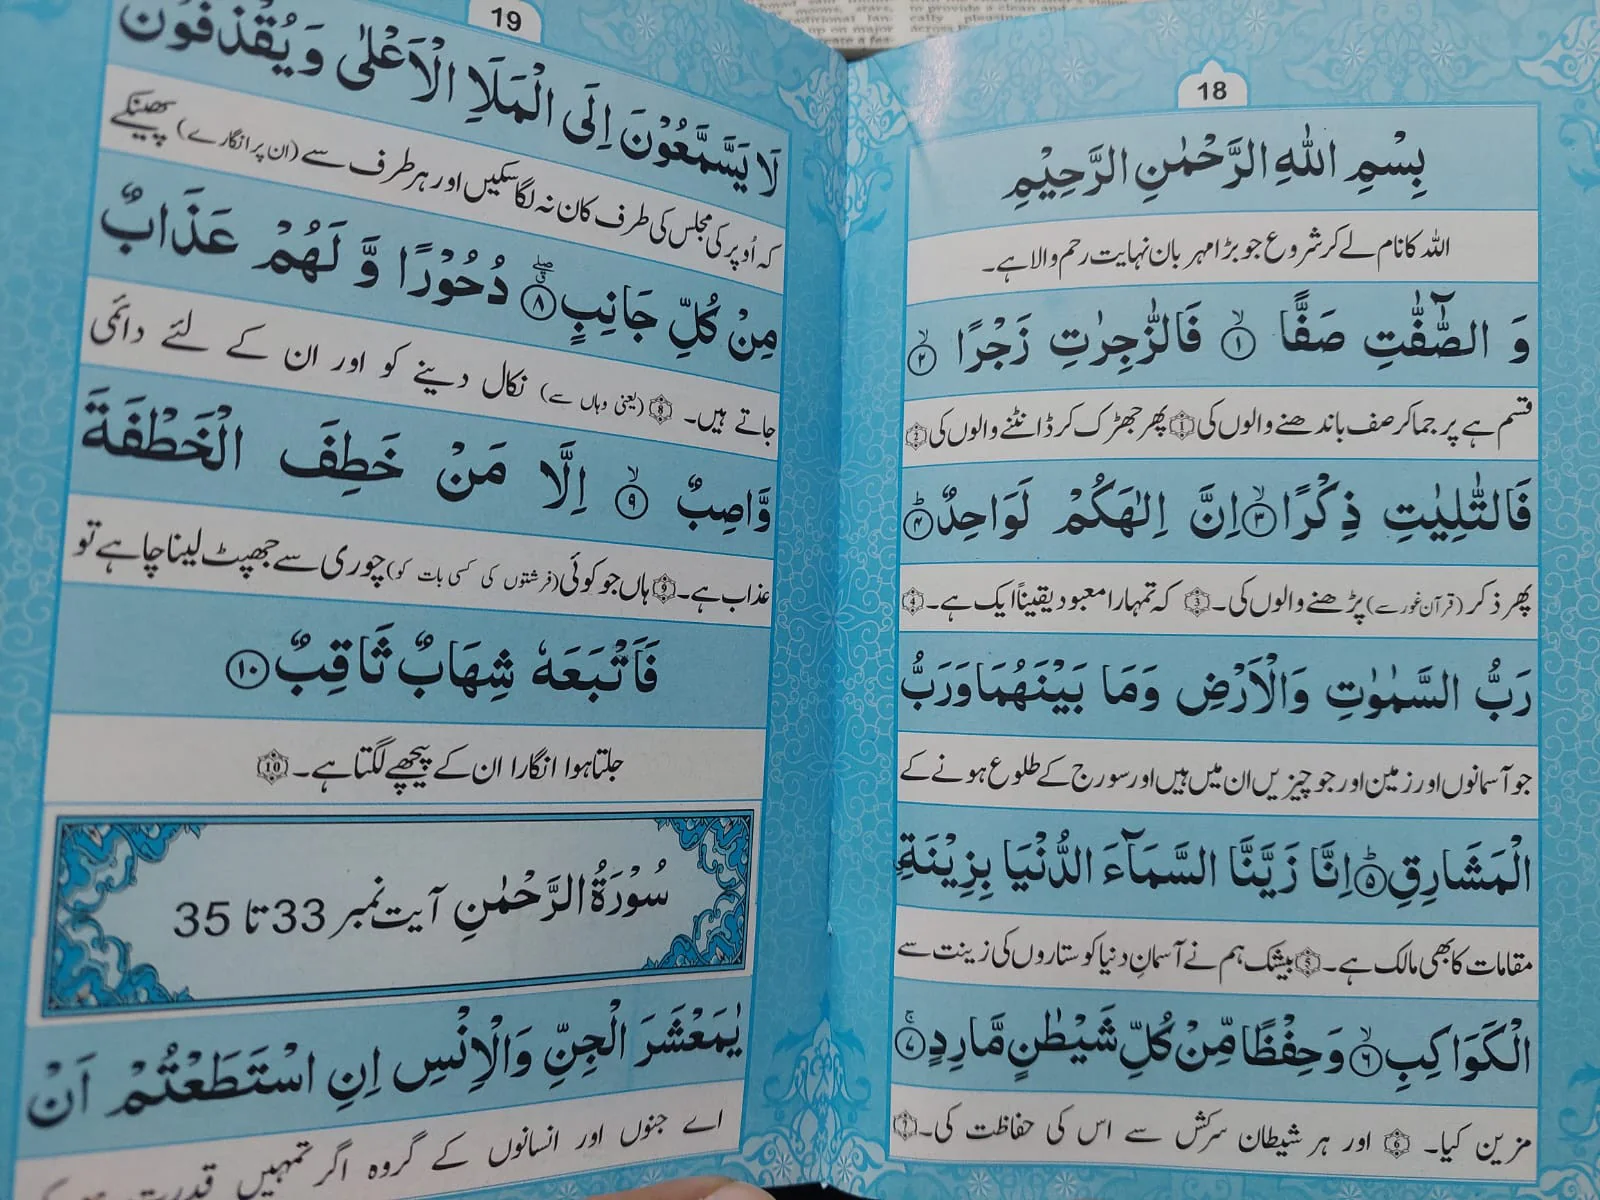 18
بِسْمِ اللهِ الرَّحْمٰنِ الرَّحِيْمِ
اللہ کا نام لے کر شروع جو بڑا مہربان نہایت رحم والا ہے۔
وَ الصّٰٓفّٰتِ صَفًّا ۙ﴿۱﴾ فَالزّٰجِرٰتِ زَجْرًا ۙ﴿۲﴾
قسم ہے پر جما کر صف باندھنے والوں کی ﴿1﴾ پھر جھڑک کر ڈانٹنے والوں کی ﴿2﴾
فَالتّٰلِيٰتِ ذِكْرًا ۙ﴿۳﴾ اِنَّ اِلٰهَكُمْ لَوَاحِدٌ ؕ﴿۴﴾
پھر ذکر (قرآن غور سے) پڑھنے والوں کی۔ ﴿3﴾ کہ تمہارا معبود یقیناً ایک ہے۔ ﴿4﴾
رَبُّ السَّمٰوٰتِ وَالْاَرْضِ وَمَا بَيْنَهُمَا وَرَبُّ
جو آسمانوں اور زمین اور جو چیزیں ان میں ہیں اور سورج کے طلوع ہونے کے
الْمَشَارِقِ ؕ﴿۵﴾ اِنَّا زَيَّنَّا السَّمَآءَ الدُّنْيَا بِزِيْنَةِ
مقامات کا بھی مالک ہے۔ ﴿5﴾ بیشک ہم نے آسمانِ دنیا کو ستاروں کی زینت سے
الْكَوَاكِبِ ۙ﴿۶﴾ وَحِفْظًا مِّنْ كُلِّ شَيْطٰنٍ مَّارِدٍ ۚ﴿۷﴾
مزین کیا۔ ﴿6﴾ اور ہر شیطان سرکش سے اس کی حفاظت کی۔ ﴿7﴾
19
لَا يَسَّمَّعُوْنَ اِلَى الْمَلَاِ الْاَعْلٰى وَ يُقْذَفُوْنَ
کہ اُوپر کی مجلس کی طرف کان نہ لگا سکیں اور ہر طرف سے (ان پر انگارے) پھینکے
مِنْ كُلِّ جَانِبٍ ۖ﴿۸﴾ دُحُوْرًا وَّ لَهُمْ عَذَابٌ
جاتے ہیں۔ ﴿8﴾ (یعنی وہاں سے) نکال دینے کو اور ان کے لئے دائمی
وَّاصِبٌ ۙ﴿۹﴾ اِلَّا مَنْ خَطِفَ الْخَطْفَةَ
عذاب ہے۔ ﴿9﴾ ہاں جو کوئی (فرشتوں کی کسی بات کو) چوری سے جھپٹ لینا چاہے تو
فَاَتْبَعَهٗ شِهَابٌ ثَاقِبٌ ﴿۱۰﴾
جلتا ہوا انگارا ان کے پیچھے لگتا ہے۔ ﴿10﴾
سُوْرَةُ الرَّحْمٰنِ آیت نمبر 33 تا 35
يٰمَعْشَرَ الْجِنِّ وَالْاِنْسِ اِنِ اسْتَطَعْتُمْ اَنْ
اے جنوں اور انسانوں کے گروہ اگر تمہیں قدرت